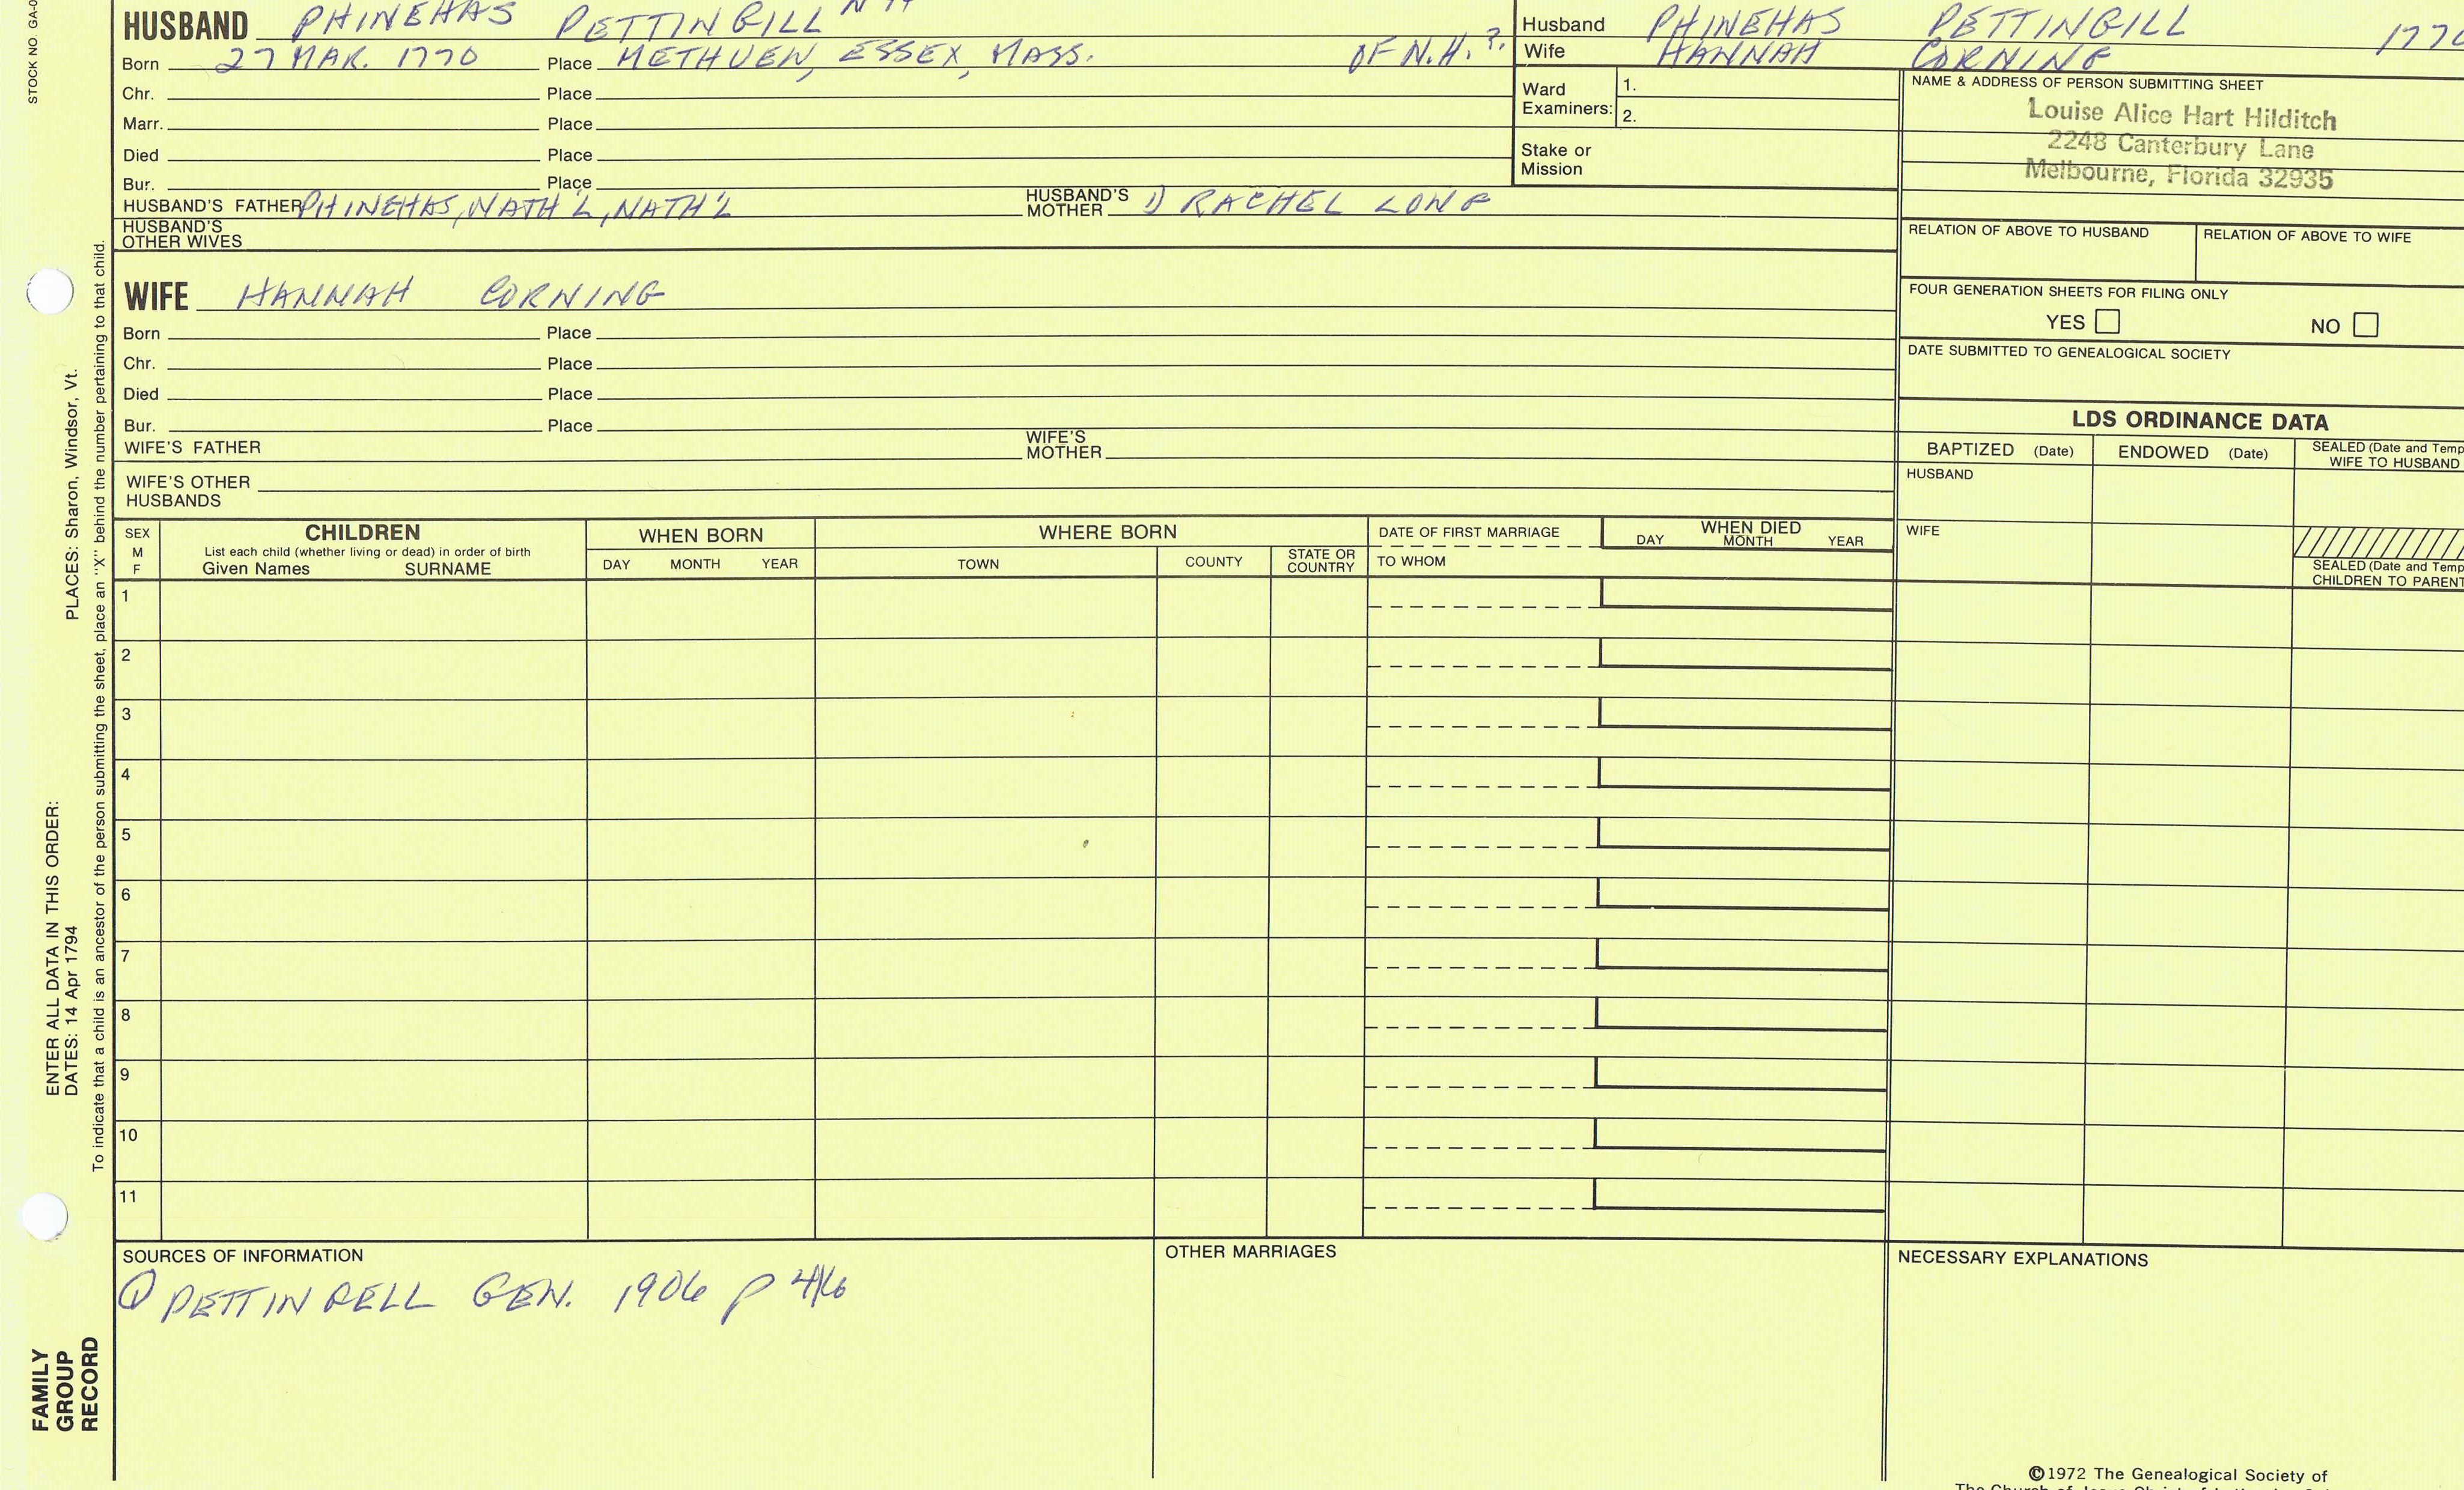 STOCK NO. GA-0
HUSBAND PHINEHAS PETTINGILL
Born 27 MAR. 1770 Place METHUEN, ESSEX, MASS. OF N.H.?
Chr. Place
Marr. Place
Died Place
Bur. Place
HUSBAND'S FATHER PHINEHAS, NATH'L, NATH'L HUSBAND'S MOTHER 1) RACHEL LONG
HUSBAND'S OTHER WIVES
WIFE HANNAH CORNING
Born Place
Chr. Place
Died Place
Bur. Place
WIFE'S FATHER WIFE'S MOTHER
WIFE'S OTHER HUSBANDS
Husband PHINEHAS PETTINGILL 1770
Wife HANNAH CORNING
Ward Examiners: 1.
2.
Stake or Mission
NAME & ADDRESS OF PERSON SUBMITTING SHEET
Louise Alice Hart Hilditch
2248 Canterbury Lane
Melbourne, Florida 32935
RELATION OF ABOVE TO HUSBAND RELATION OF ABOVE TO WIFE
FOUR GENERATION SHEETS FOR FILING ONLY
YES NO
DATE SUBMITTED TO GENEALOGICAL SOCIETY
LDS ORDINANCE DATA
BAPTIZED (Date) ENDOWED (Date) SEALED (Date and Temp
WIFE TO HUSBAND
HUSBAND
WIFE
SEALED (Date and Temp
CHILDREN TO PARENT
SEX M F
CHILDREN
List each child (whether living or dead) in order of birth
Given Names SURNAME
WHEN BORN
DAY MONTH YEAR
WHERE BORN
TOWN COUNTY STATE OR COUNTRY
DATE OF FIRST MARRIAGE
TO WHOM
WHEN DIED
DAY MONTH YEAR
1
2
3
4
5
6
7
8
9
10
11
SOURCES OF INFORMATION
① PETTINGELL GEN. 1906 p 416
OTHER MARRIAGES
NECESSARY EXPLANATIONS
©1972 The Genealogical Society of
The Church of Jesus Christ of
ENTER ALL DATA IN THIS ORDER:
DATES: 14 Apr 1794 PLACES: Sharon, Windsor, Vt.
To indicate that a child is an ancestor of the person submitting the sheet, place an "X" behind the number pertaining to that child.
FAMILY
GROUP
RECORD